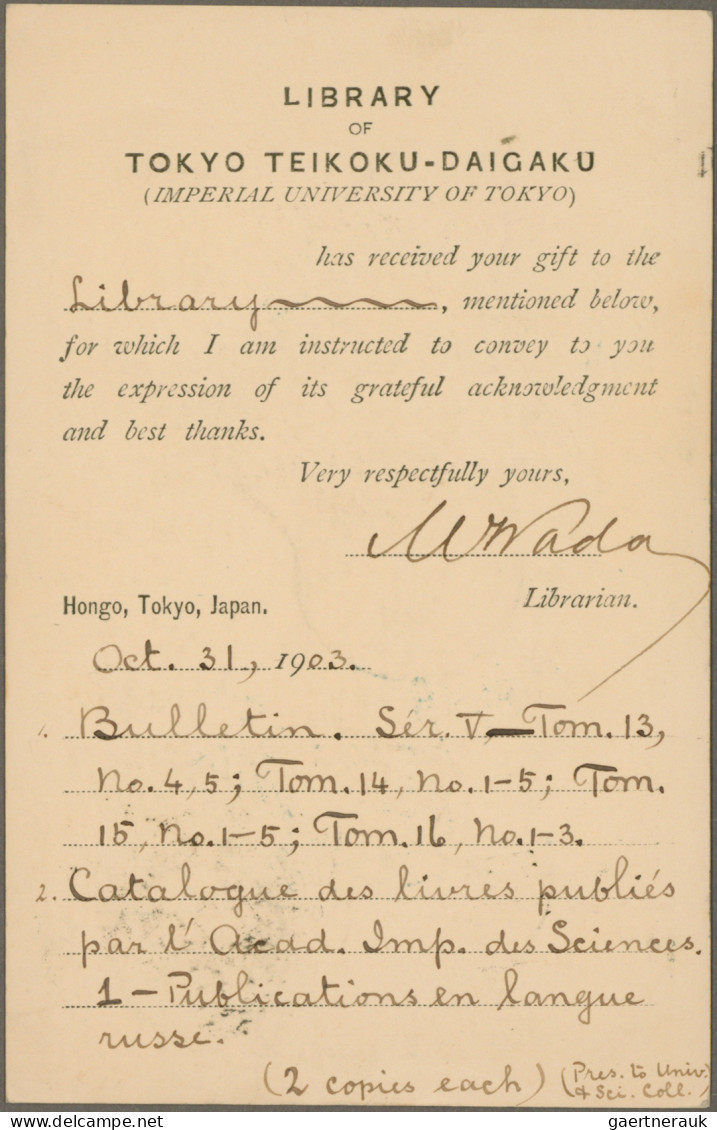 LIBRARY
OF
TOKYO TEIKOKU-DAIGAKU
(IMPERIAL UNIVERSITY OF TOKYO)
has received your gift to the
Library, mentioned below,
for which I am instructed to convey to you
the expression of its grateful acknowledgment
and best thanks.
Very respectfully yours,
M Wada
Librarian.
Hongo, Tokyo, Japan.
Oct. 31, 1903.
1. Bulletin. Sér. V—Tom. 13,
No. 4, 5; Tom. 14, No. 1-5; Tom.
15, No. 1-5; Tom. 16, No. 1-3.
2. Catalogue des livres publiés
par l'Acad. Imp. des Sciences.
1 - Publications en langue
russe.
(2 copies each) (Pres. to Univ.
& Sci. Coll.)
gaertnerauk